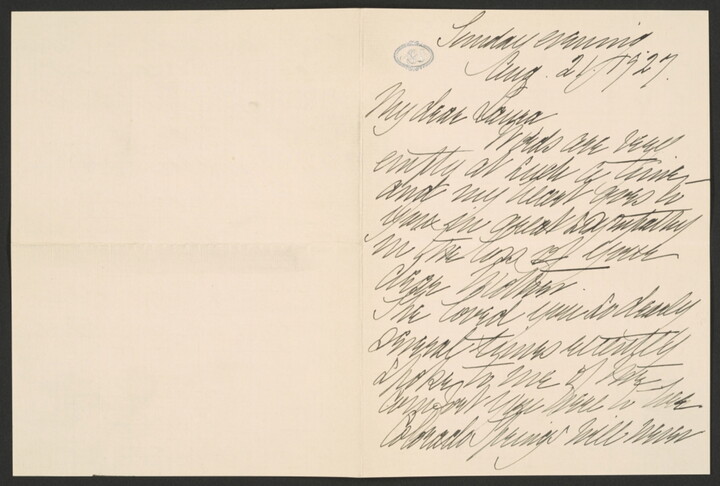 Sunday evening
Aug. 21, 1927.
My dear Laura
Words are very
empty at such a time
and my heart goes to
you in great sympathy
in the loss of your
dear Mother.
She loved you so dearly
several times recently
spoke to me of the
comfort you were to her
Colorado Springs will never